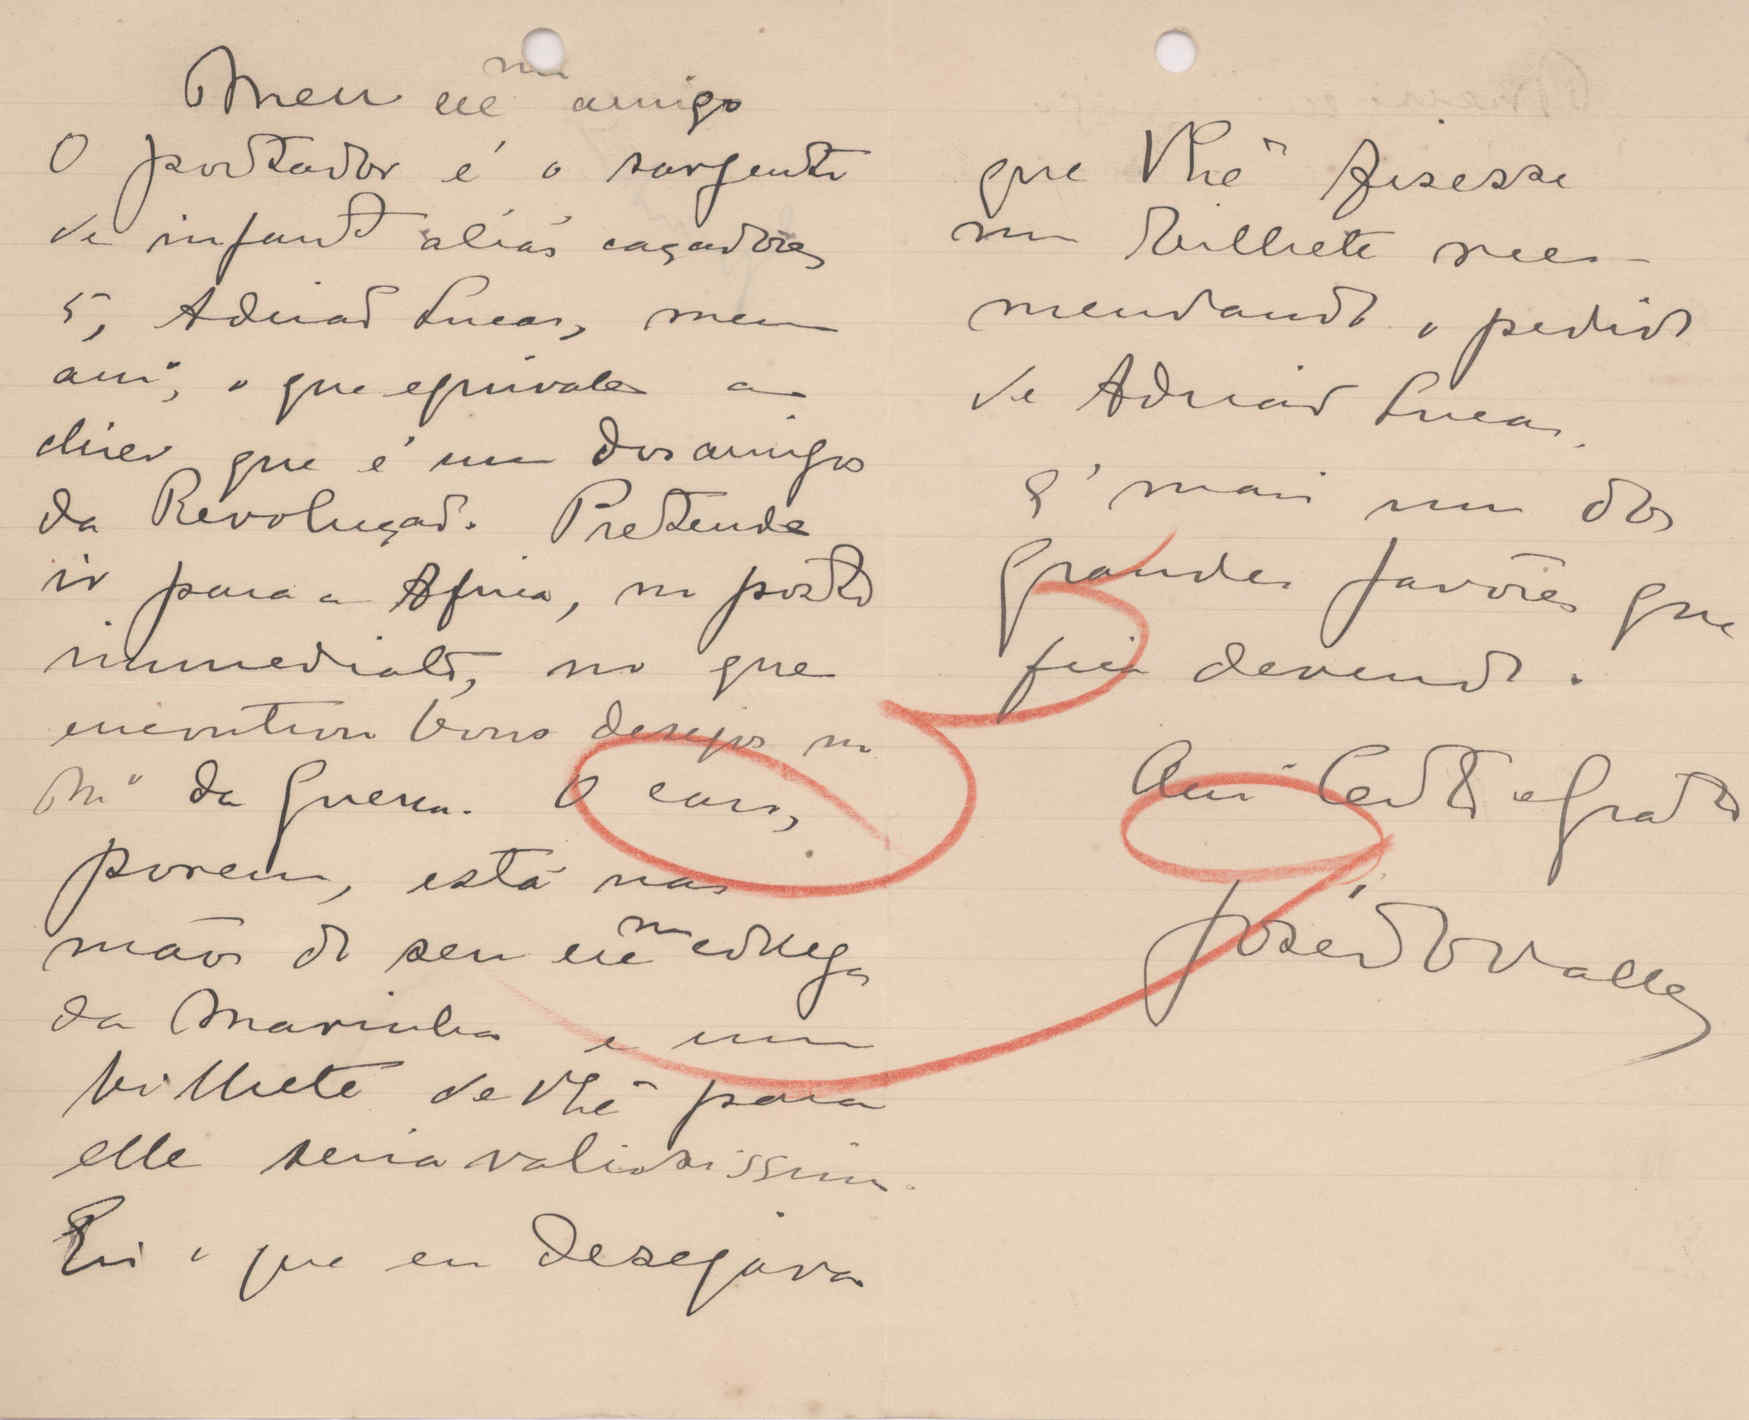 Meu exmo amigo
O portador é o sargento
de infant aliás caçadores
5, Adriaõ Lucas, meu
amº, o que equivale a
dizer que é um dos amigos
da Revoluçaõ. Pretende
ir para a Africa, no posto
immediato, no que
encontrou bons desejos no
Mº da Guerra. O caso,
porem, está nas
mãos do seu exmo collega
da Marinha e um
bilhete de Vhê para
elle seria valiosissimo.
Eis o que eu desejava
que Vhê fisesse
um bilhete recom-
mendando o pedido
de Adriaõ Lucas.
E' mais um dos
grandes favôres que
fica devendo.
Amº Certo e Grato
José do Valle